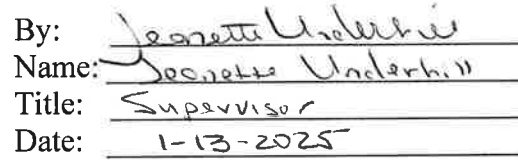 By: Jeanette Underhill
Name: Jeanette Underhill
Title: Supervisor
Date: 1-13-2025